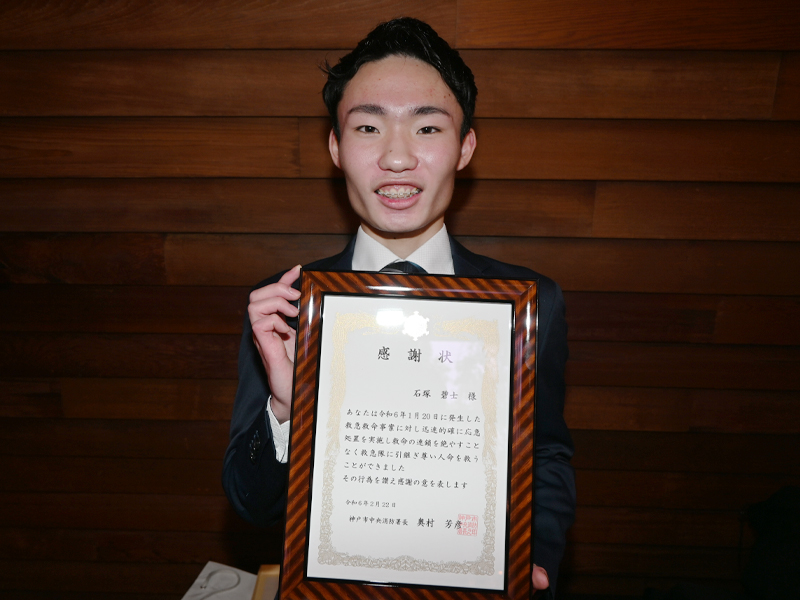 感謝状
石塚 碧士 様
あなたは令和6年1月20日に発生した
救急救命事案に対し迅速的確に応急
処置を実施し救命の連鎖を絶やすこと
なく救急隊に引継ぎ尊い人命を救う
ことができました
その行為を讃え感謝の意を表します
令和6年2月22日
神戸市中央消防署長 奥村 芳彦